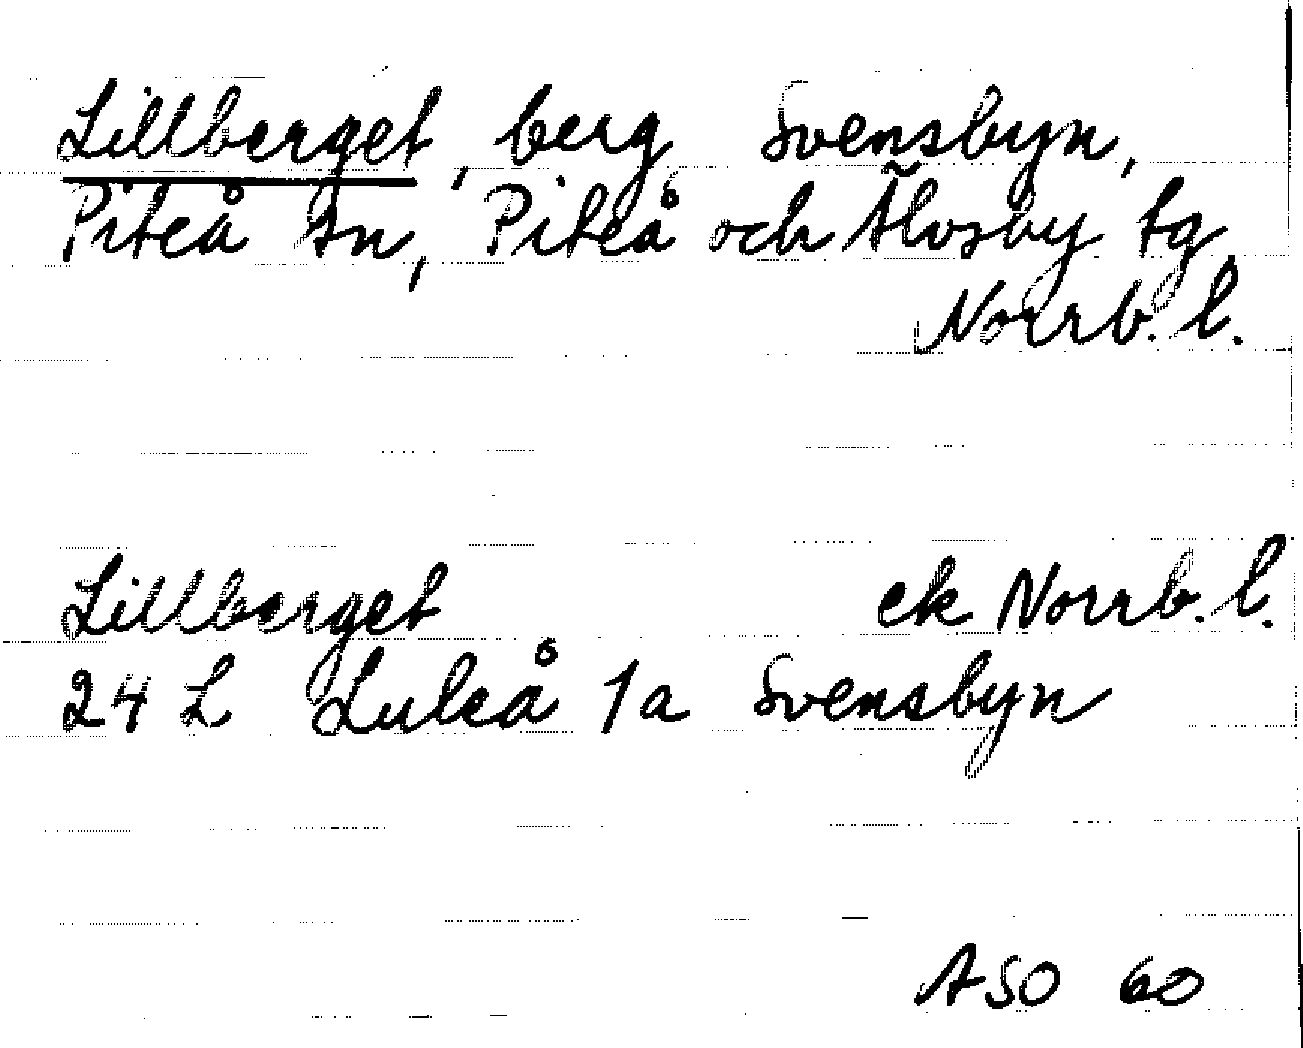 Lillberget, berg Svensbyn,
Piteå sn, Piteå och Älvsby tg
Norrb. l.
Lillberget ek Norrb. l.
24 L Luleå 1a Svensbyn
ASO 60